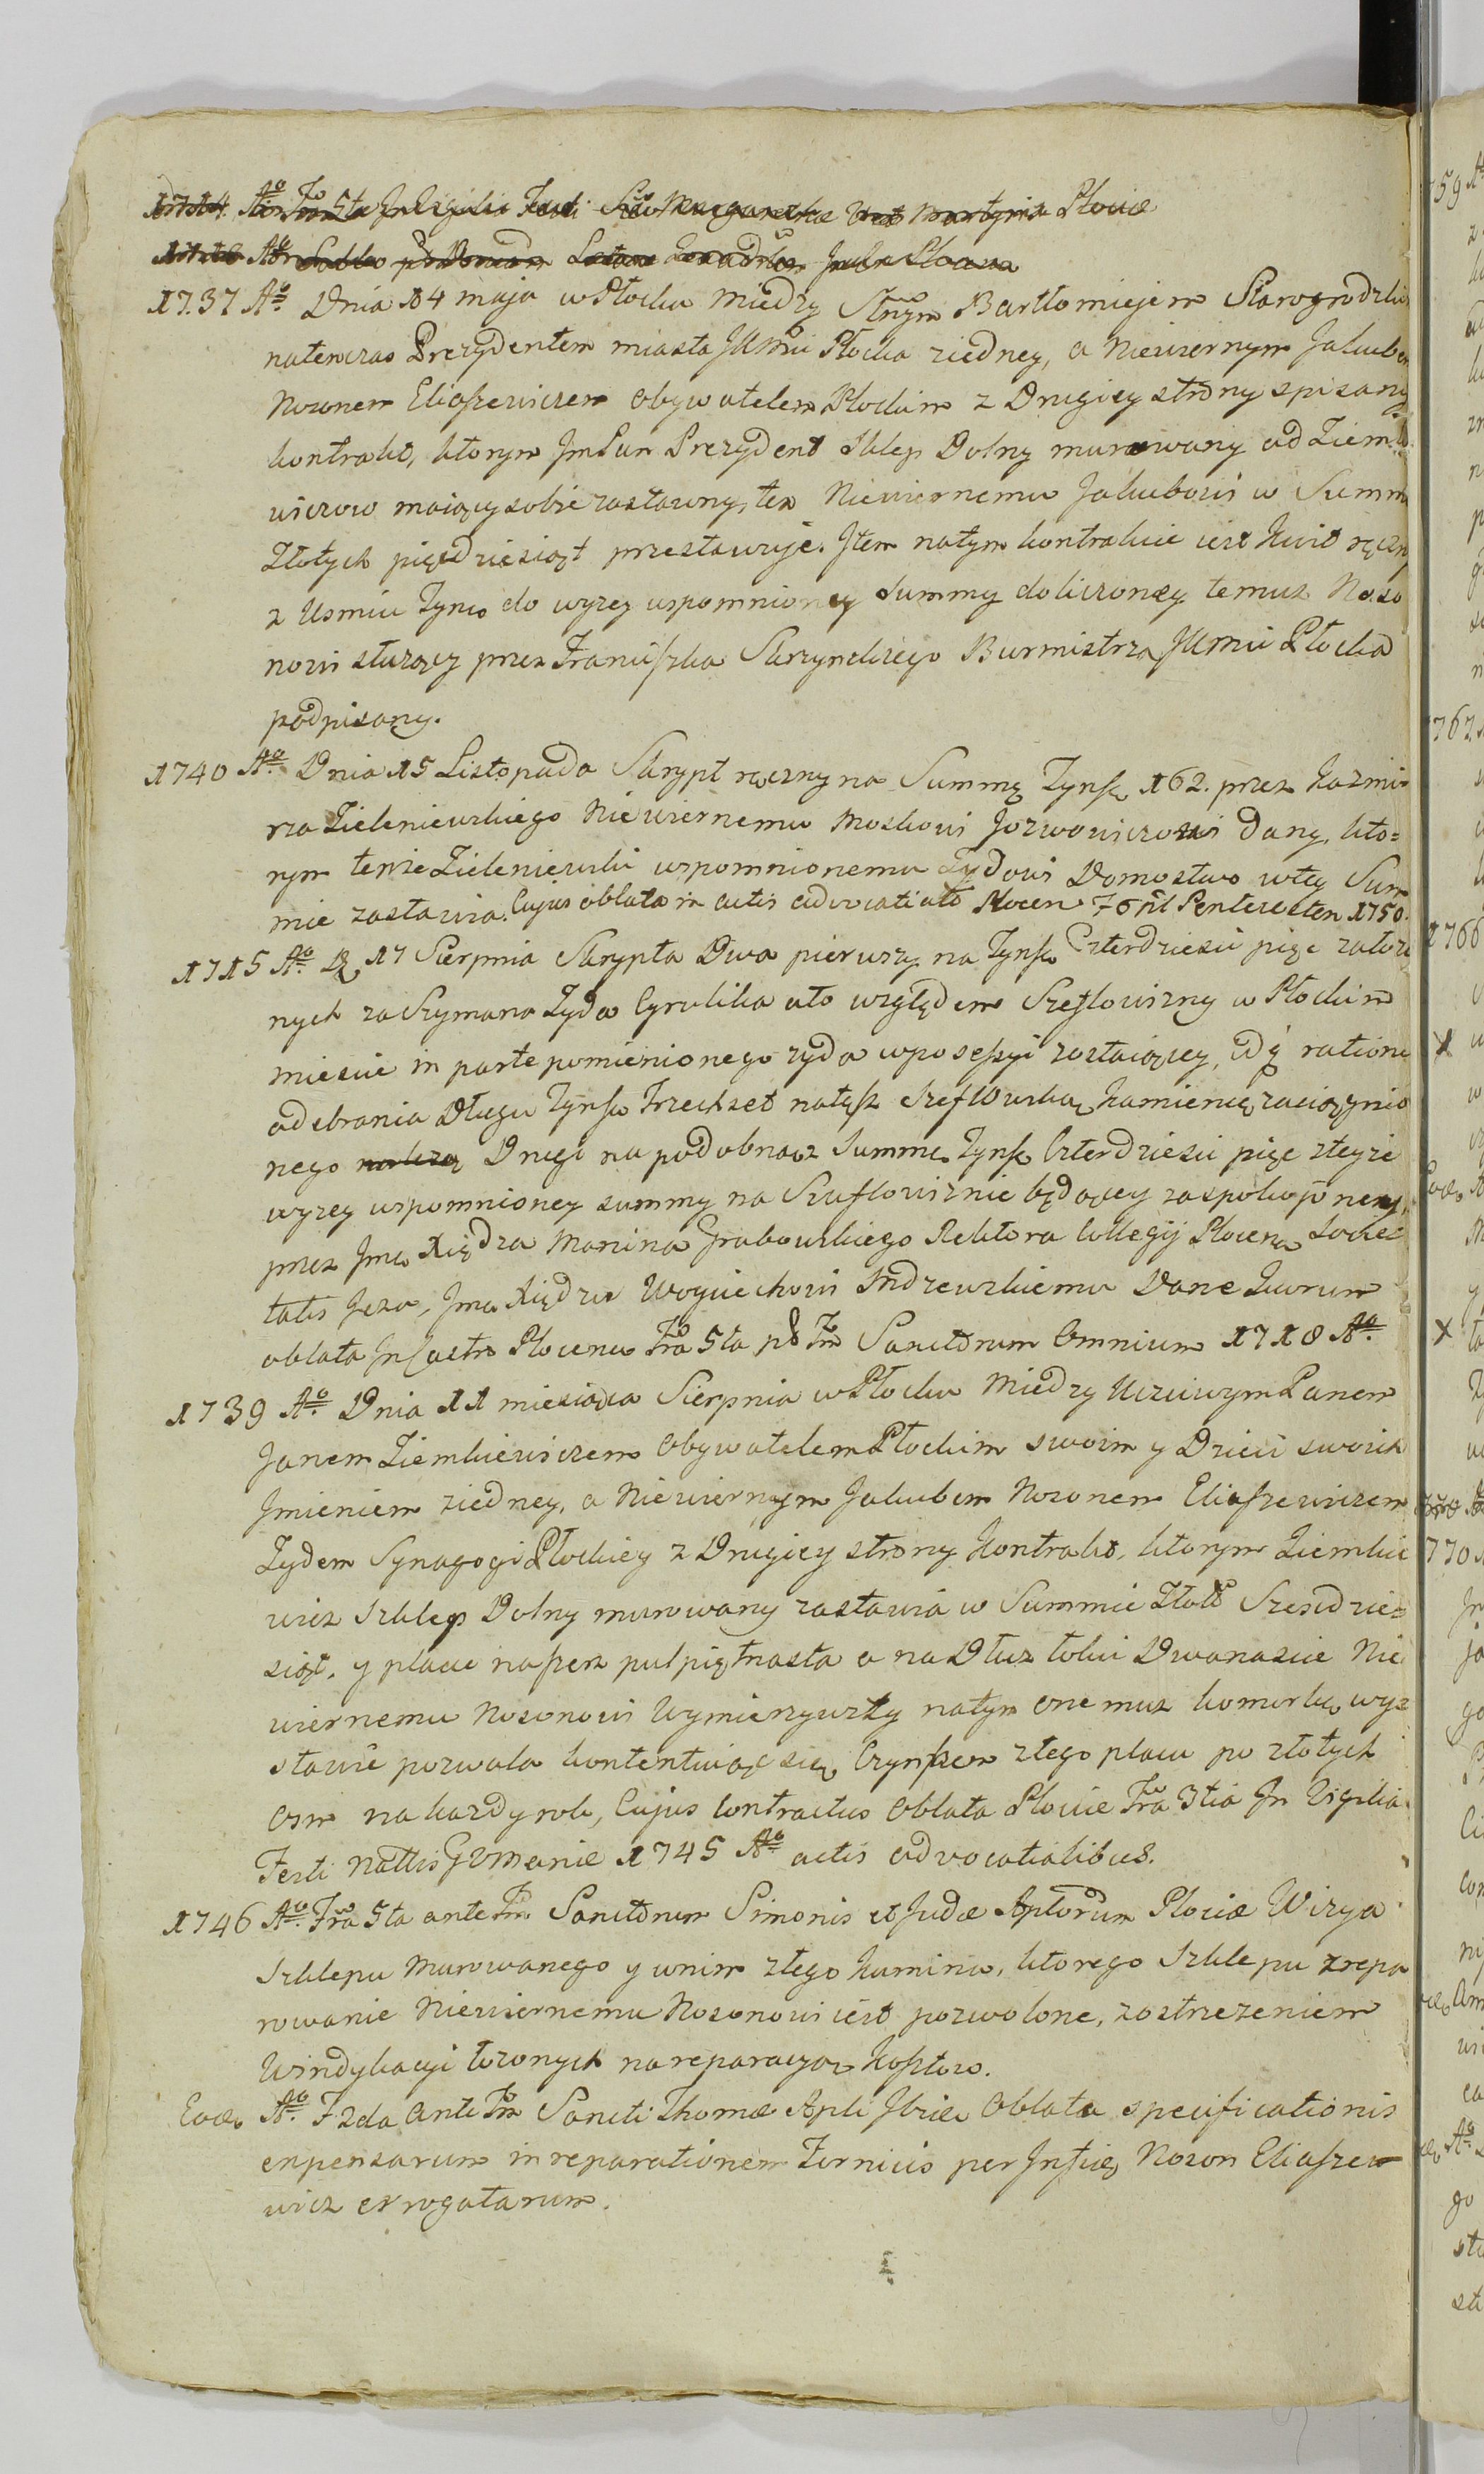 1714 Aō Fr̄a 5ta In Vigilia Festi Scæ Margarethæ V et Martyris Plociæ
1718 Aō Sabbo pd Dominicam
1737 Aō Dnia 14 maja w Płocku między Słnym Bartłomiejem Starogrodzkim
natenczas Prezydentem miasta JKMci Płocka ziedney, a Niewiernym Jakubem
Nosonem Eliaszewiczem Obywatelem Płockim z Drugiey strony spisany
kontrakt, ktorym JmPan Prezydent Sklep Dolny murowany od Ziemki
wiczow maiący sobie zastawny, ten Niewiernemu Jakubowi w Summie
Złotych pięcdziesiąt przestawuje. Jtem natym kontrakcie iest Kwit ręczny
z Usmiu Tynfo do wyzey wspomnioney Summy doliczoney temuz Noso
nowi słuzący przez Franciszka Skrzynskiego Burmistrza JKMci Płocka
podpisany.
1740 Aō Dnia 15 Listopada Skrypt ręczny na Summę Tynfo 162. przez Kazmie
rza Zieleniewskiego Niewiernemu Moskowi Jozwowiczowi dany, kto=
rym tenze Zieleniewski wspomnionemu Zydowi Domostwo wtey Sum
mie zastawia. Cujus oblata in actis advocatialib Plocen F 6 Pentecosten 1750.
1715 Aō D 17 Sierpnia Skrypta Dwa pierwszy na Tynfo Czterdziesci pięc załozo
nych za Szymana Zyda Cyrulika ato względem Szeflowizny w Płockim
miescie in parte pomienionego zyda wposeszyi zostaiącey, idq ratione
odebrania Długu Tynfo Trzechset natęsz Szeflowską Kamienicę zaciągnio
nego Drugi na podobnąsz Summę Tynfo Czterdziesci pięc zteyze
wyzey wspomnioney summy na Szuflowiznie będącey zaspokojoney,
przez Jmo Xiędza Marcina Grabowskiego Rektora Collegij Plocen Socie
tatis Jesu, Jmo Xiędzu Woyciechowi Indzewskiemu Dane Quorum
oblata In Castro Plocensi Fr̄a 5ta pd Fm Sanctorum Omnium 1718 Aō
1739 Aō Dnia 11 miesiąca Sierpnia w Płocku Między Uczciwym Panem
Janem Ziemkiewiczem Obywatelem Płockim swoim y Dzieci swoich
Jmieniem ziedney, a Niewiernym Jakubem Nosonem Eliaszewiczem
Zydem Synagogi Płockiey z Drugiey strony Kontrakt, ktorym Ziemkie
wicz Szklep Dolny murowany zastawia w Summie Złot Szescdzie=
siąt, y placu naszesz pułpiętnasta a na Dłuz łokci Dwanascie Nie
wiernemu Nosonowi Wymierzywszy natym onemuz komorkę wys
stawic pozwala kontentuiąc się Czynszem ztego placu po złotych
osm na kazdy rok, Cujus Contractus Oblata Plociæ Fr̄a 3tia In Vigilia
Festi Nattis Romaniæ 1745 Aō actis advocatialibus.
1746 Aō Fr̄a 5ta ante Fm Sanctorum Simonis et Judæ Aptorum Plociæ Wizya
Szklepu Murowanego y wnim złego Kumina, ktorego Szklepu zrepa
rowanie Niewiernemu Nosonowi iest pozwolone, zostrzezeniem
Windykacyi łozonych nareparacyą Kosztow.
Eodo Aō F 2da ante Fm Sancti Thomæ Apli Ibide Oblata specificationis
expensarum in reparationem Fornicis per Infidę Noson Eliaszew
wicz erogatarum.